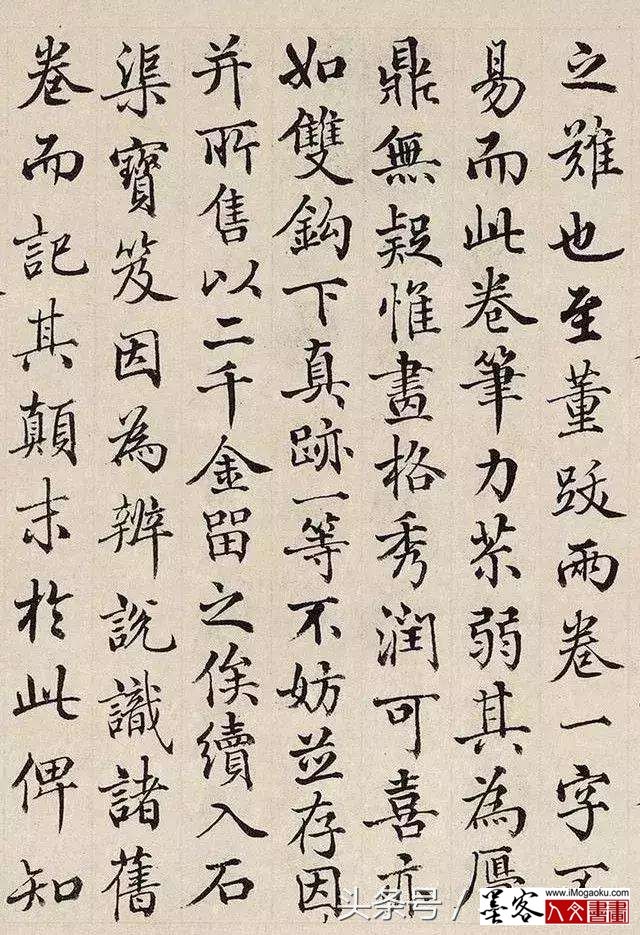 之難也至董跋兩卷一字不
易而此卷筆力苶弱其為贋
鼎無疑惟畫格秀潤可喜亦
如雙鈎下真跡一等不妨並存因
并所售以二千金留之俟續入石
渠寶笈因為辨說識諸舊
卷而記其顛末於此俾知
头条号 /
墨客
www.iMogaoku.com
人文書畫